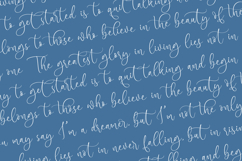 to get started is to quit talking
belongs to those who believe in the beauty of th
one The greatest glory in living lies not in
to get started is to quit talking and begin
belongs to those who believe in the beauty of the
u may say I'm a dreamer but I'm not the only
living lies not in never falling, but in risin